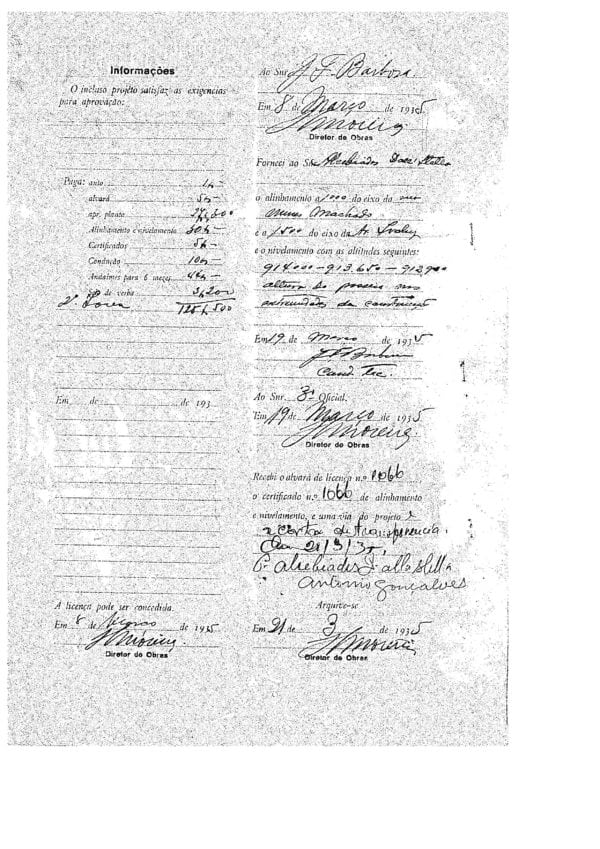 Informações
O incluso projéto satisfaz as exigencias
para aprovação:
Paga: auto 1$-
alvará 5$-
apr. planta
Alinhamento e nivelamento 30$-
Certificados 5$-
Condução 10$-
Andaimes para 6 mezes
de verba 3$200
125$500
Em de de 193
A licença pode ser concedida.
Em 8 de Março de 1935
JMoreira
Diretor de Obras
Ao Snr. J F Barbosa
Em 8 de Março de 1935
JMoreira
Diretor de Obras
Forneci ao Snr. Alcebiades Dall'Stella
o alinhamento a do eixo da rua
Nunes Machado
e a do eixo da Av. Ivahy
e o nivelamento com as altitudes seguintes:
914000-913.650-912,900
altura de passeio nas
extremidades da construcção
Em 19 de Março de 1935
Cand Tec.
Ao Snr. 3º Oficial.
Em 19 de Março de 1935
JMoreira
Diretor de Obras
Recebi o alvará de licença n.º 1066
o certificado n.º 1066 de alinhamento
e nivelamento, e uma via do projeto
e carta de transparencia
21/3/35
P. Alsebiades Dallo Stella
Antonio Gonçalves
Arquive-se
Em 21 de 3 de 1935
JMoreira
Diretor de Obras